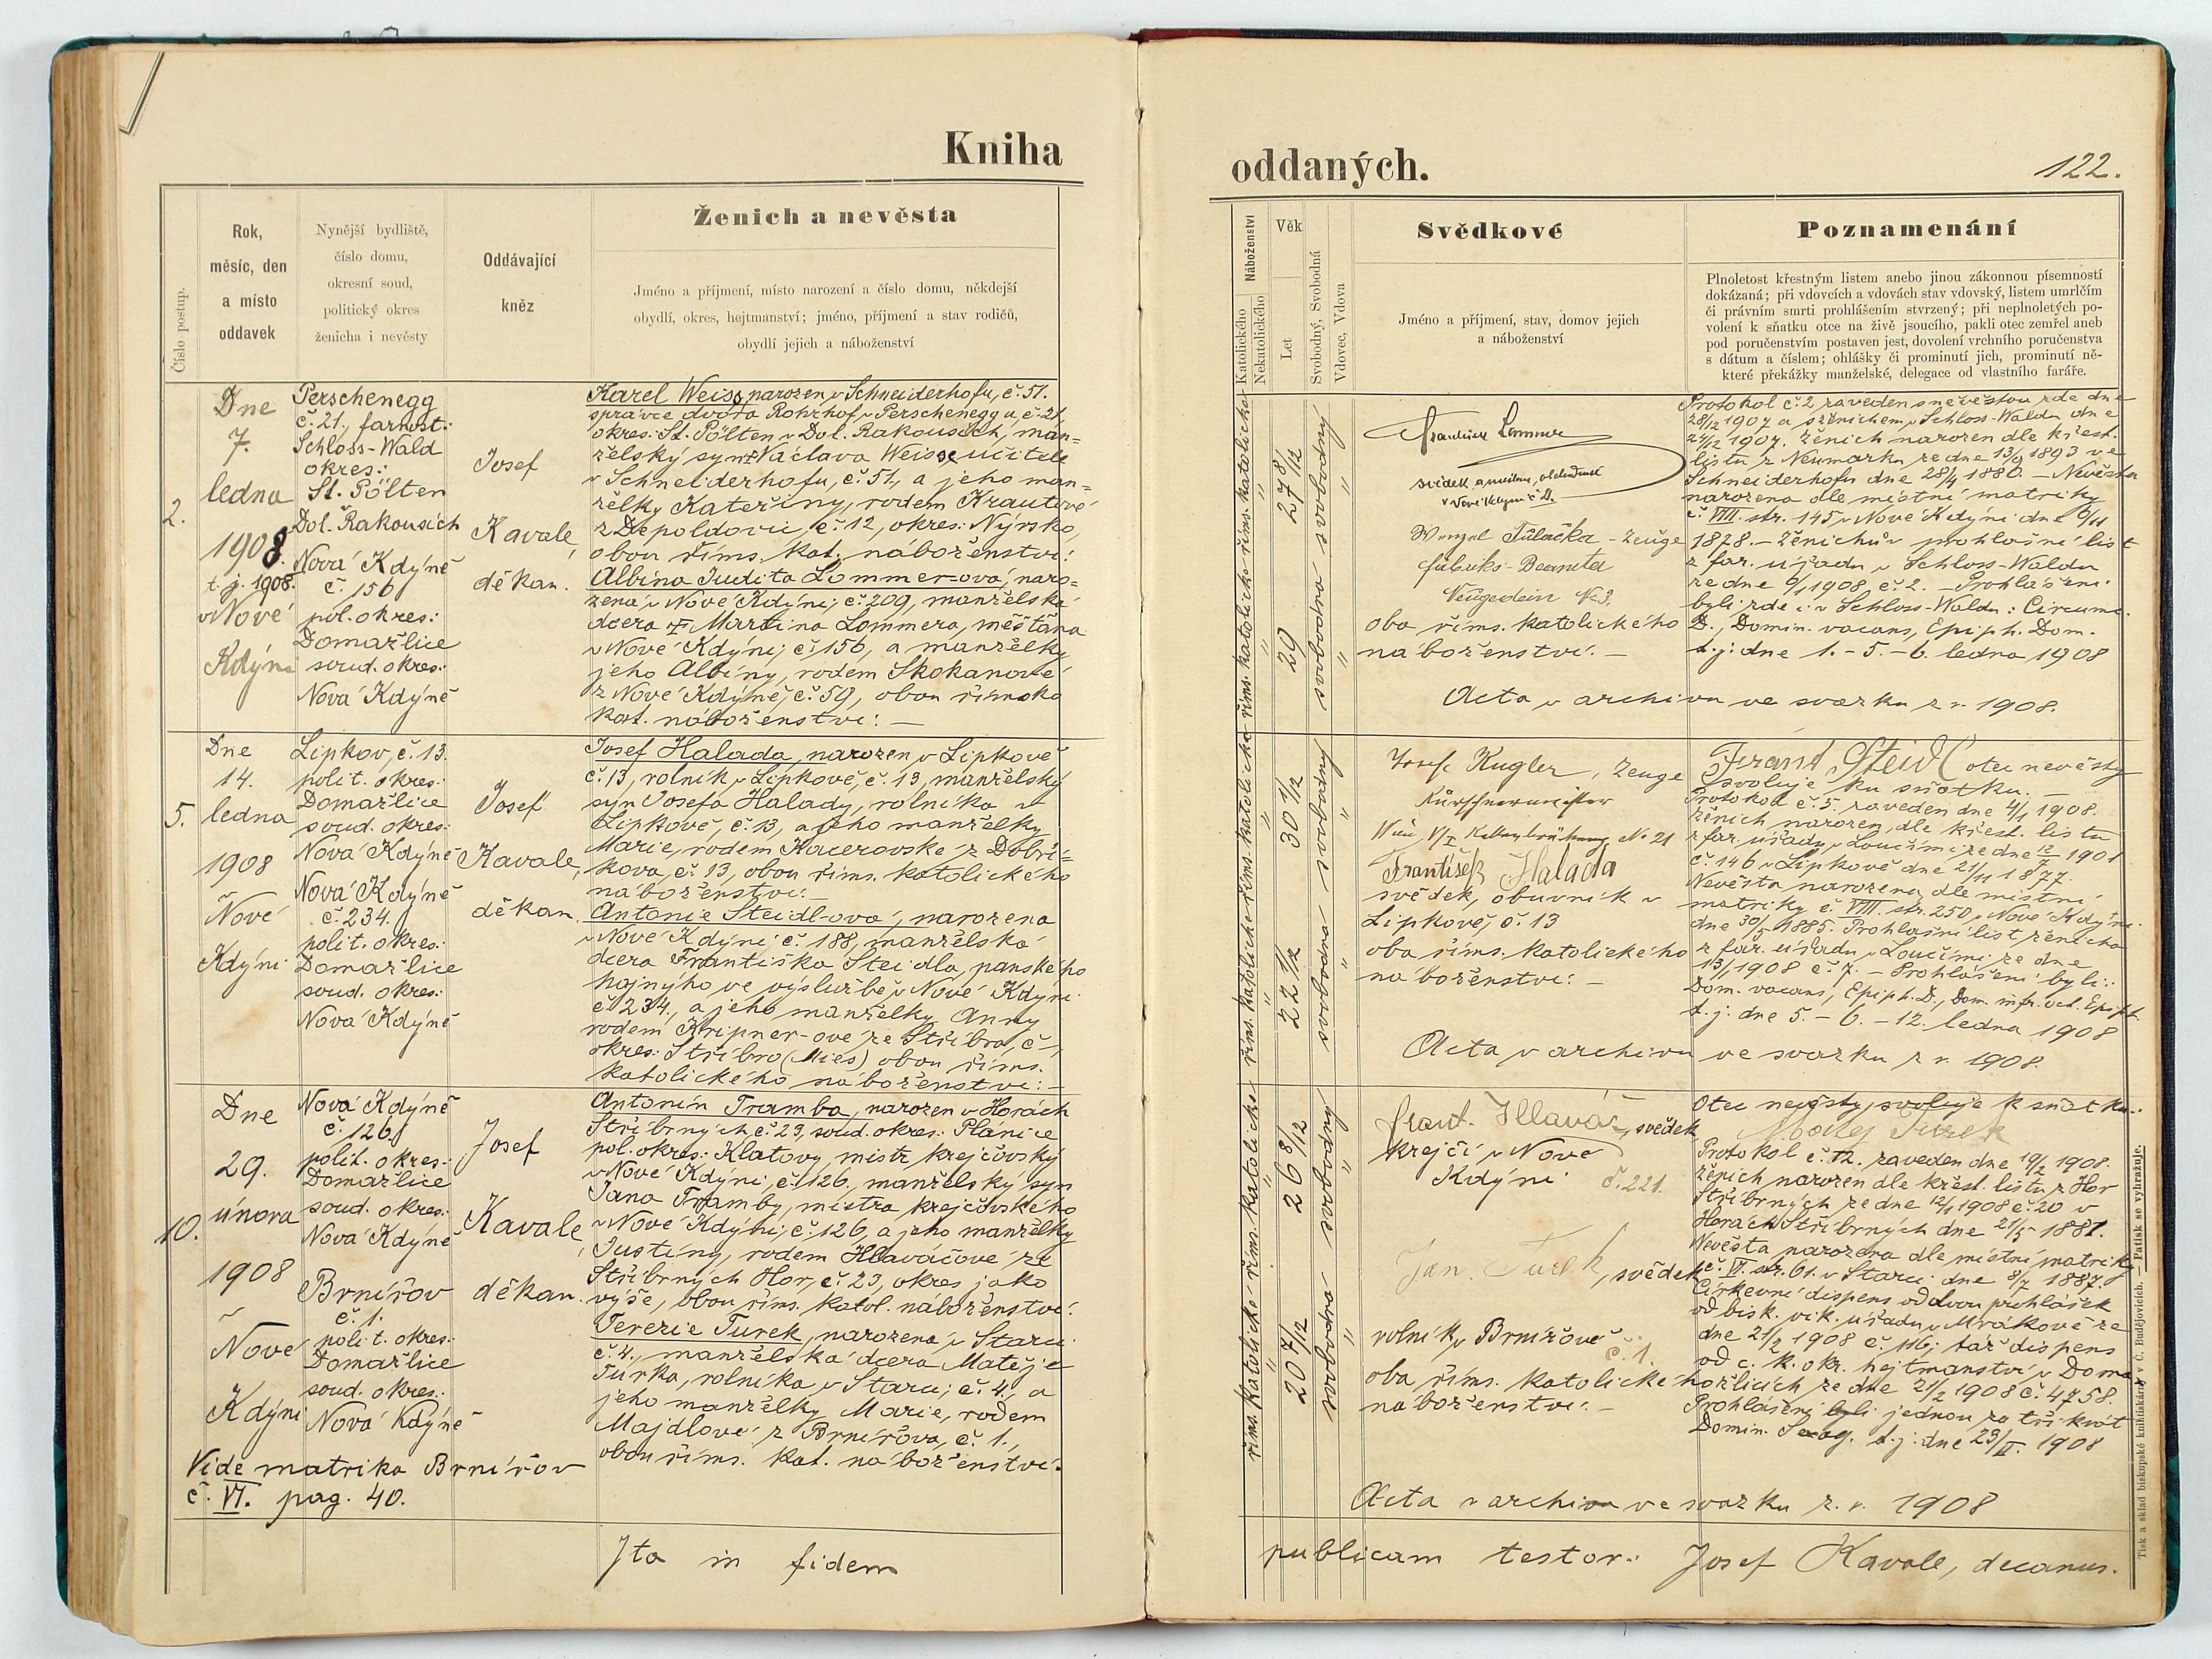 Kniha
Číslo postup.
Rok,
měsíc, den
a místo
oddavek
Nynější bydliště,
číslo domu,
okresní soud,
politický okres
ženicha i nevěsty
Oddávající
kněz
Ženich a nevěsta
Jméno a příjmení, místo narození a číslo domu, někdejší
obydlí, okres, hejtmanství; jméno, příjmení a stav rodičů,
obydlí jejich a náboženství
2.
Dne
7.
ledna
1908.
t. j. 1908.
v Nové
Kdýni
Perschenegg
č. 21., farnost:
Schloss-Wald
okres:
St. Pölten
Dol. Rakousích
Nová Kdýně
č. 156
pol. okres:
Domažlice
soud. okres:
Nová Kdýně
Josef
Kavale,
děkan.
Karel Weiss, narozen v Schneiderhofu, č. 51.
správce dvora Rohrhof v Perschenegg u, č. 21,
okres: St. Pölten v Dol. Rakousích, man=
želský syn † Václava Weisse, učitele
v Schneiderhofu, č. 51, a jeho man=
želky Kateřiny, rodem Krautové
z Depoldovic, č. 12, okres: Nýrsko,
obou řims. kat. náboženství:
Albína Judita Lommer-ová, naro=
zená v Nové Kdýni, č. 209, manželská
dcera † Martina Lommera, měšťana
v Nové Kdýni, č. 156, a manželky
jeho Albíny, rodem Skokanové
z Nové Kdýně, č. 59, obou římsko
kat. náboženství: —
5.
Dne
14.
ledna
1908
v Nové
Kdýni
Lipkov, č. 13.
polit. okres:
Domažlice
soud. okres:
Nová Kdýně
Nová Kdýně
č. 234.
polit. okres:
Domažlice
soud. okres:
Nová Kdýně
Josef
Kavale,
děkan.
Josef Halada, narozen v Lipkově
č. 13, rolník v Lipkově, č. 13, manželský
syn Josefa Halady, rolníka v
Lipkově, č. 13, a jeho manželky
Marie, rodem Kacerovské z Dobří=
kova, č. 13, obou řims. katolického
náboženství: —
Antonie Steidl-ová, narozena
v Nové Kdýni, č. 188, manželská
dcera Františka Steidla, panského
hajného ve výslužbě v Nové Kdýni
č. 234., a jeho manželky Anny
rodem Kripner-ové ze Stříbra, č. –,
okres: Stříbro (Mies) obou řims.
katolického náboženství: —
10.
Dne
29.
února
1908
v Nové
Kdýni
Nová Kdýně
č. 126
polit. okres:
Domažlice
soud. okres:
Nová Kdýně
Brnířov
č. 1.
polit. okres:
Domažlice
soud. okres:
Nová Kdýně
Josef
Kavale,
děkan.
Antonín Tramba, narozen v Horách
Stříbrných č. 23, soud. okres: Plánice
pol. okres: Klatovy, mistr krejčovský
v Nové Kdýni, č. 126., manželský syn
Jana Tramby, mistra krejčovského
v Nové Kdýni, č. 126, a jeho manželky
Justiny, rodem Hlaváčové ze
Stříbrných Hor, č. 23, okres jako
výše, obou řims. katol. náboženství.
Terezie Turek, narozená v Starci
č. 4., manželská dcera Matěje
Turka, rolníka v Starci, č. 4., a
jeho manželky Marie, rodem
Majdlové z Brnířova, č. 1.,
obou řims. kat. náboženství.
Vide matrika Brnířov
č. VI. pag. 40.
Ita in fidem
oddaných.
122.
Náboženství
Katolického
Nekatolického
Věk
Let
Svobodný, Svobodná
Vdovec, Vdova
Svědkové
Jméno a příjmení, stav, domov jejich
a náboženství
Poznamenání
Plnoletost křestným listem anebo jinou zákonnou písemností
dokázaná; při vdovcích a vdovách stav vdovský, listem umrlčím
či právním smrti prohlášením stvrzený; při neplnoletých po-
volení k sňatku otce na živě jsoucího, pakli otec zemřel aneb
pod poručenstvím postaven jest, dovolení vrchního poručenstva
s dátum a číslem; ohlášky či prominutí jich, prominutí ně-
které překážky manželské, delegace od vlastního faráře.
řims. katolické řims. katolické
27 8/12
29
svobodný
svobodná
Lommer
svědek
v Nové Kdyni
Wenzel Tulačka - Zeuge
Fabriks-Beamter
Neugedein No 3.
oba řims. katolického
náboženství. —
Protokol č. 2 zaveden s nevěstou zde dne
28/12 1907 a s ženichem v Schloss-Waldu dne
24/12 1907. Ženich narozen dle křest.
listu z Neumarku ze dne 13/9 1893 ve
Schneiderhofu dne 28/4 1880. — Nevěsta
narozena dle místní matriky
č. VIII. str. 145 v Nové Kdýni dne 6/11
1878. — Ženichův prohlašní list
z far. úřadu v Schloss-Waldu
ze dne 6/1 1908, č. 2. — Prohlášení
byli zde i v Schloss-Waldu: Circumc.
D., Domin. vacans, Epiph. Dom.
t. j. dne 1. – 5. – 6. ledna 1908
Acta v archivu ve svazku z r. 1908.
řims. katolické řims. katolické
30 1/2
22 1/2
svobodný
svobodná
Josef Kugler, Zeuge
Kürschnermeister
No 21
František Halada
svědek, obuvník v
Lipkově, č. 13
oba řims. katolického
náboženství: —
Frant Steidl otec nevěsty
svoluje ku sňatku. —
Protokol č. 5. zaveden dne 4/1 1908.
Ženich narozen dle křest. listu
z far. úřadu v Loučimi ze dne 12/7 1901
č. 146 v Lipkově dne 21/11 1877.
Nevěsta narozena dle místní
matriky č. VIII. str. 250 v Nové Kdýni
dne 30/5 1885. Prohlašní list ženicha
z far. úřadu v Loučimi ze dne
13/1 1908 č. 7. — Prohlášení byli:
Dom. vacans, Epiph. D., Dom. infr. oct. Epiph.
t. j. dne 5. – 6. – 12. ledna 1908
Acta v archivu ve svazku z r. 1908.
řims. katolické řims. katolické
26 8/12
20 7/12
svobodný
svobodná
Frant. Hlaváč, svědek
krejčí v Nové
Kdýni č. 221.
Jan Turek, svědek
rolník v Brnířově
č. 1.
oba řims. katolického
náboženství: —
Otec nevěsty svoluje k sňatku:
Matěj Turek
Protokol č. 12. zaveden dne 19/2 1908.
Ženich narozen dle křest. listu z Hor
Stříbrných ze dne 12/1 1908 č. 20 v
Horách Stříbrných dne 21/5 1881.
Nevěsta narozena dle místní matriky
č. VI. str. 61. v Starci dne 8/7 1887.
Církevní dispens od dvou prohlášek
od bisk. vik. úřadu v Mrákově ze
dne 21/2 1908 č. 116; též dispens
od c. k. okr. hejtmanství v Doma
žlicích ze dne 21/2 1908 č. 4758.
Prohlášení byli jednou za třikrát
Domin. Sexag. t. j. dne 23/II. 1908
Acta v archivu ve svazku z. r. 1908
publicam testor: Josef Kavale, decanus.
Tisk a sklad biskupské knihtiskárny v Č. Budějovicích. — Patisk se vyhražuje.